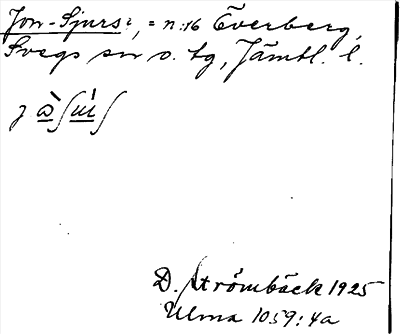 Jon-Sjurs:, = n:16 Överberg,
Svegs sn o. tg, Jämtl. l.
D. Strömbäck 1925
Ulma 1059:4a